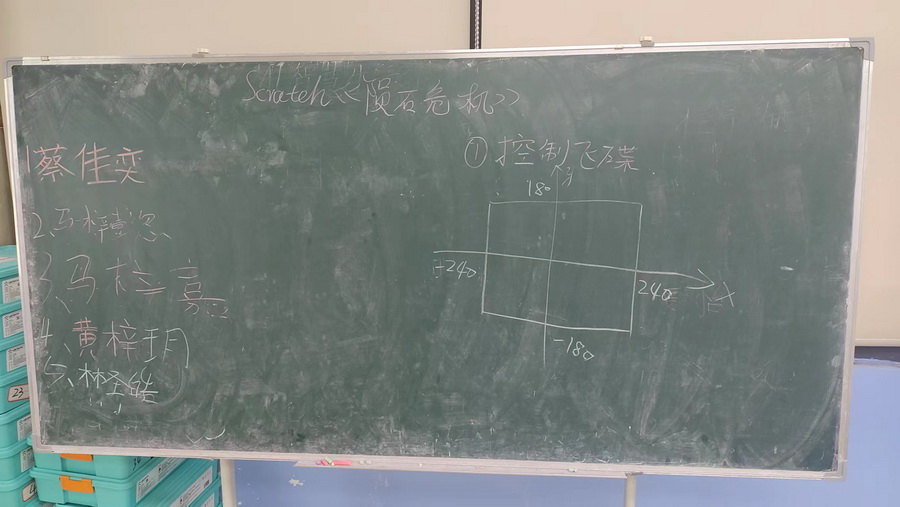 Scratch《陨石危机》
①控制飞碟
1蔡佳奕
3、马梓嘉
4、黄梓玥
5、林圣
180
y
-240
240
x
-180
23